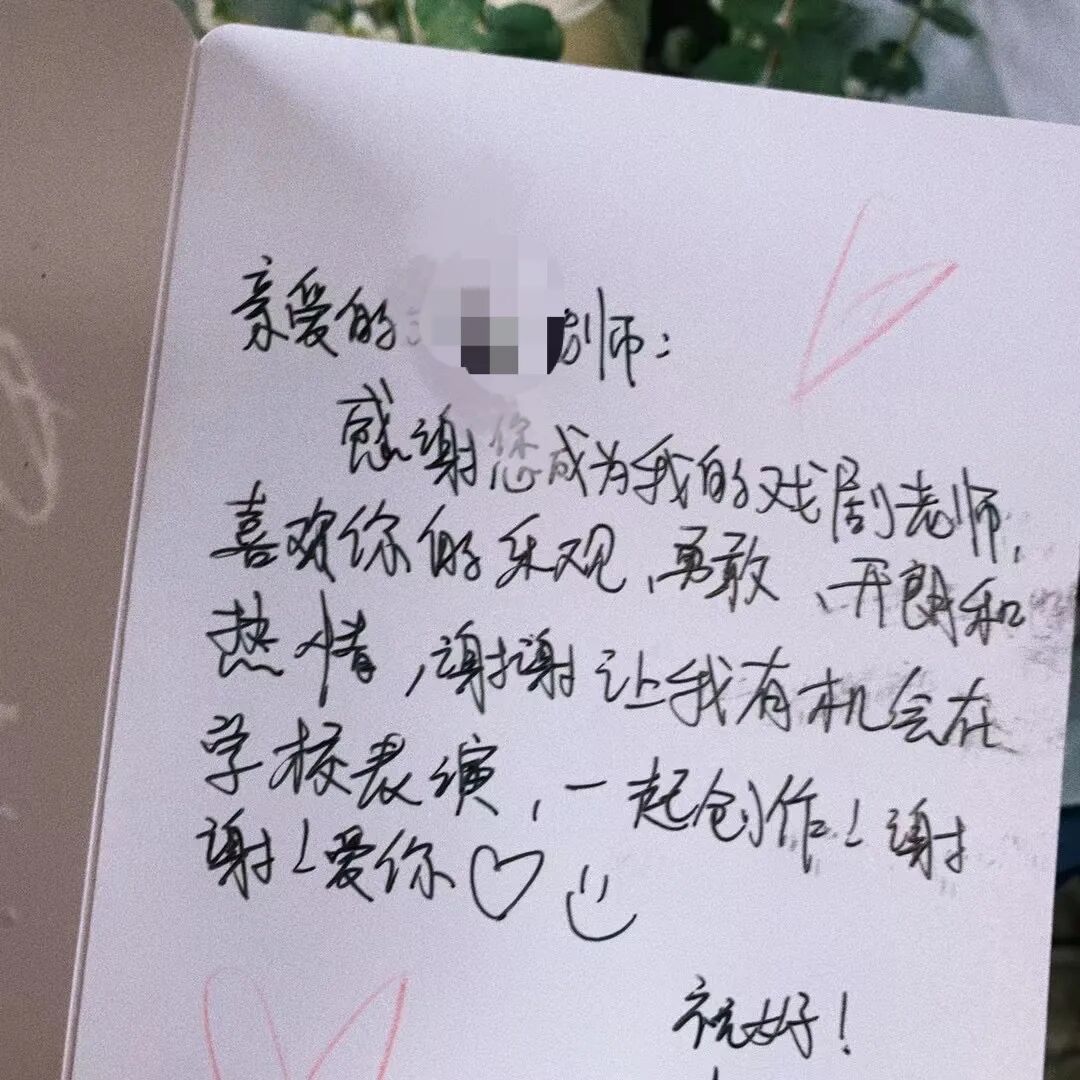 亲爱的老师：
感谢您成为我的戏剧老师，
喜欢你的乐观、勇敢、开朗和
热情，谢谢让我有机会在
学校表演，一起创作！谢
谢！爱你♡
祝好！